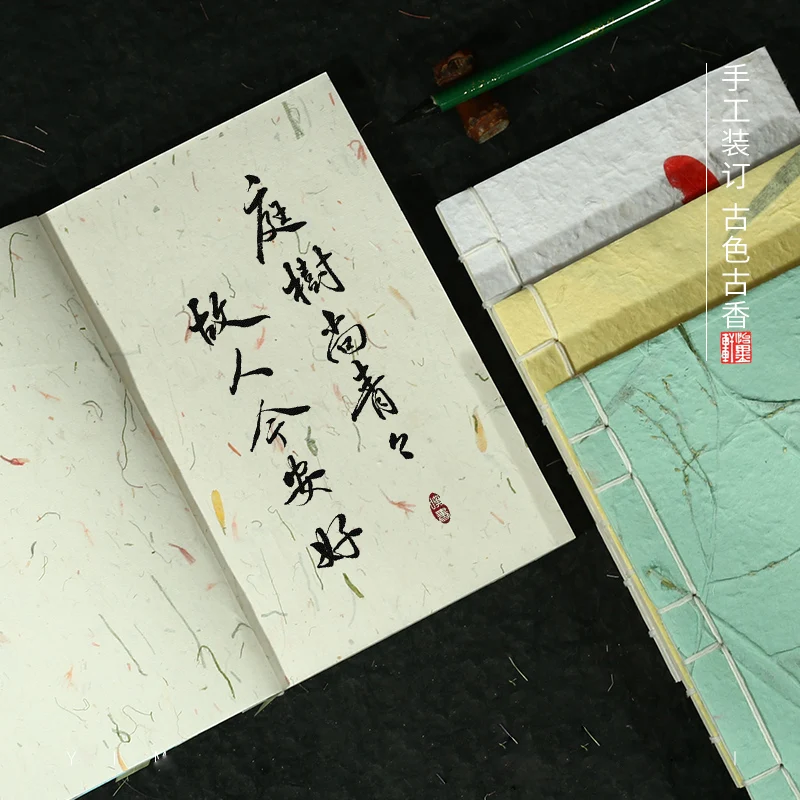 庭樹尚青々
故人今安好
手工装订 古色古香